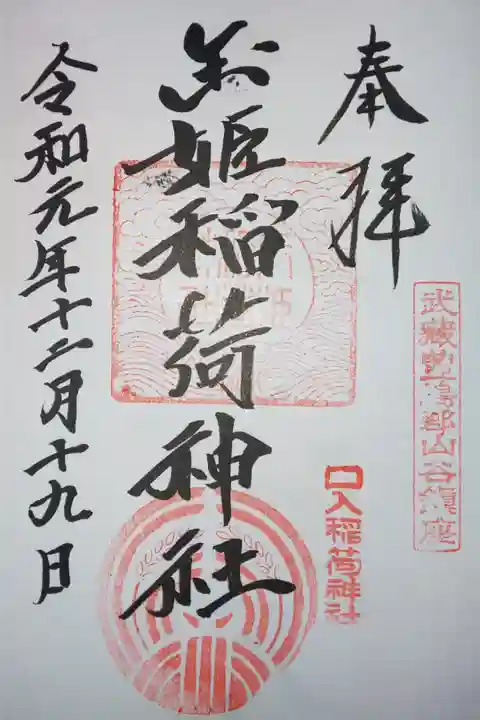 奉拝
武蔵野豊島郡山谷鎮座
口入稲荷神社
玉姫稲荷神社
令和元年十二月十九日